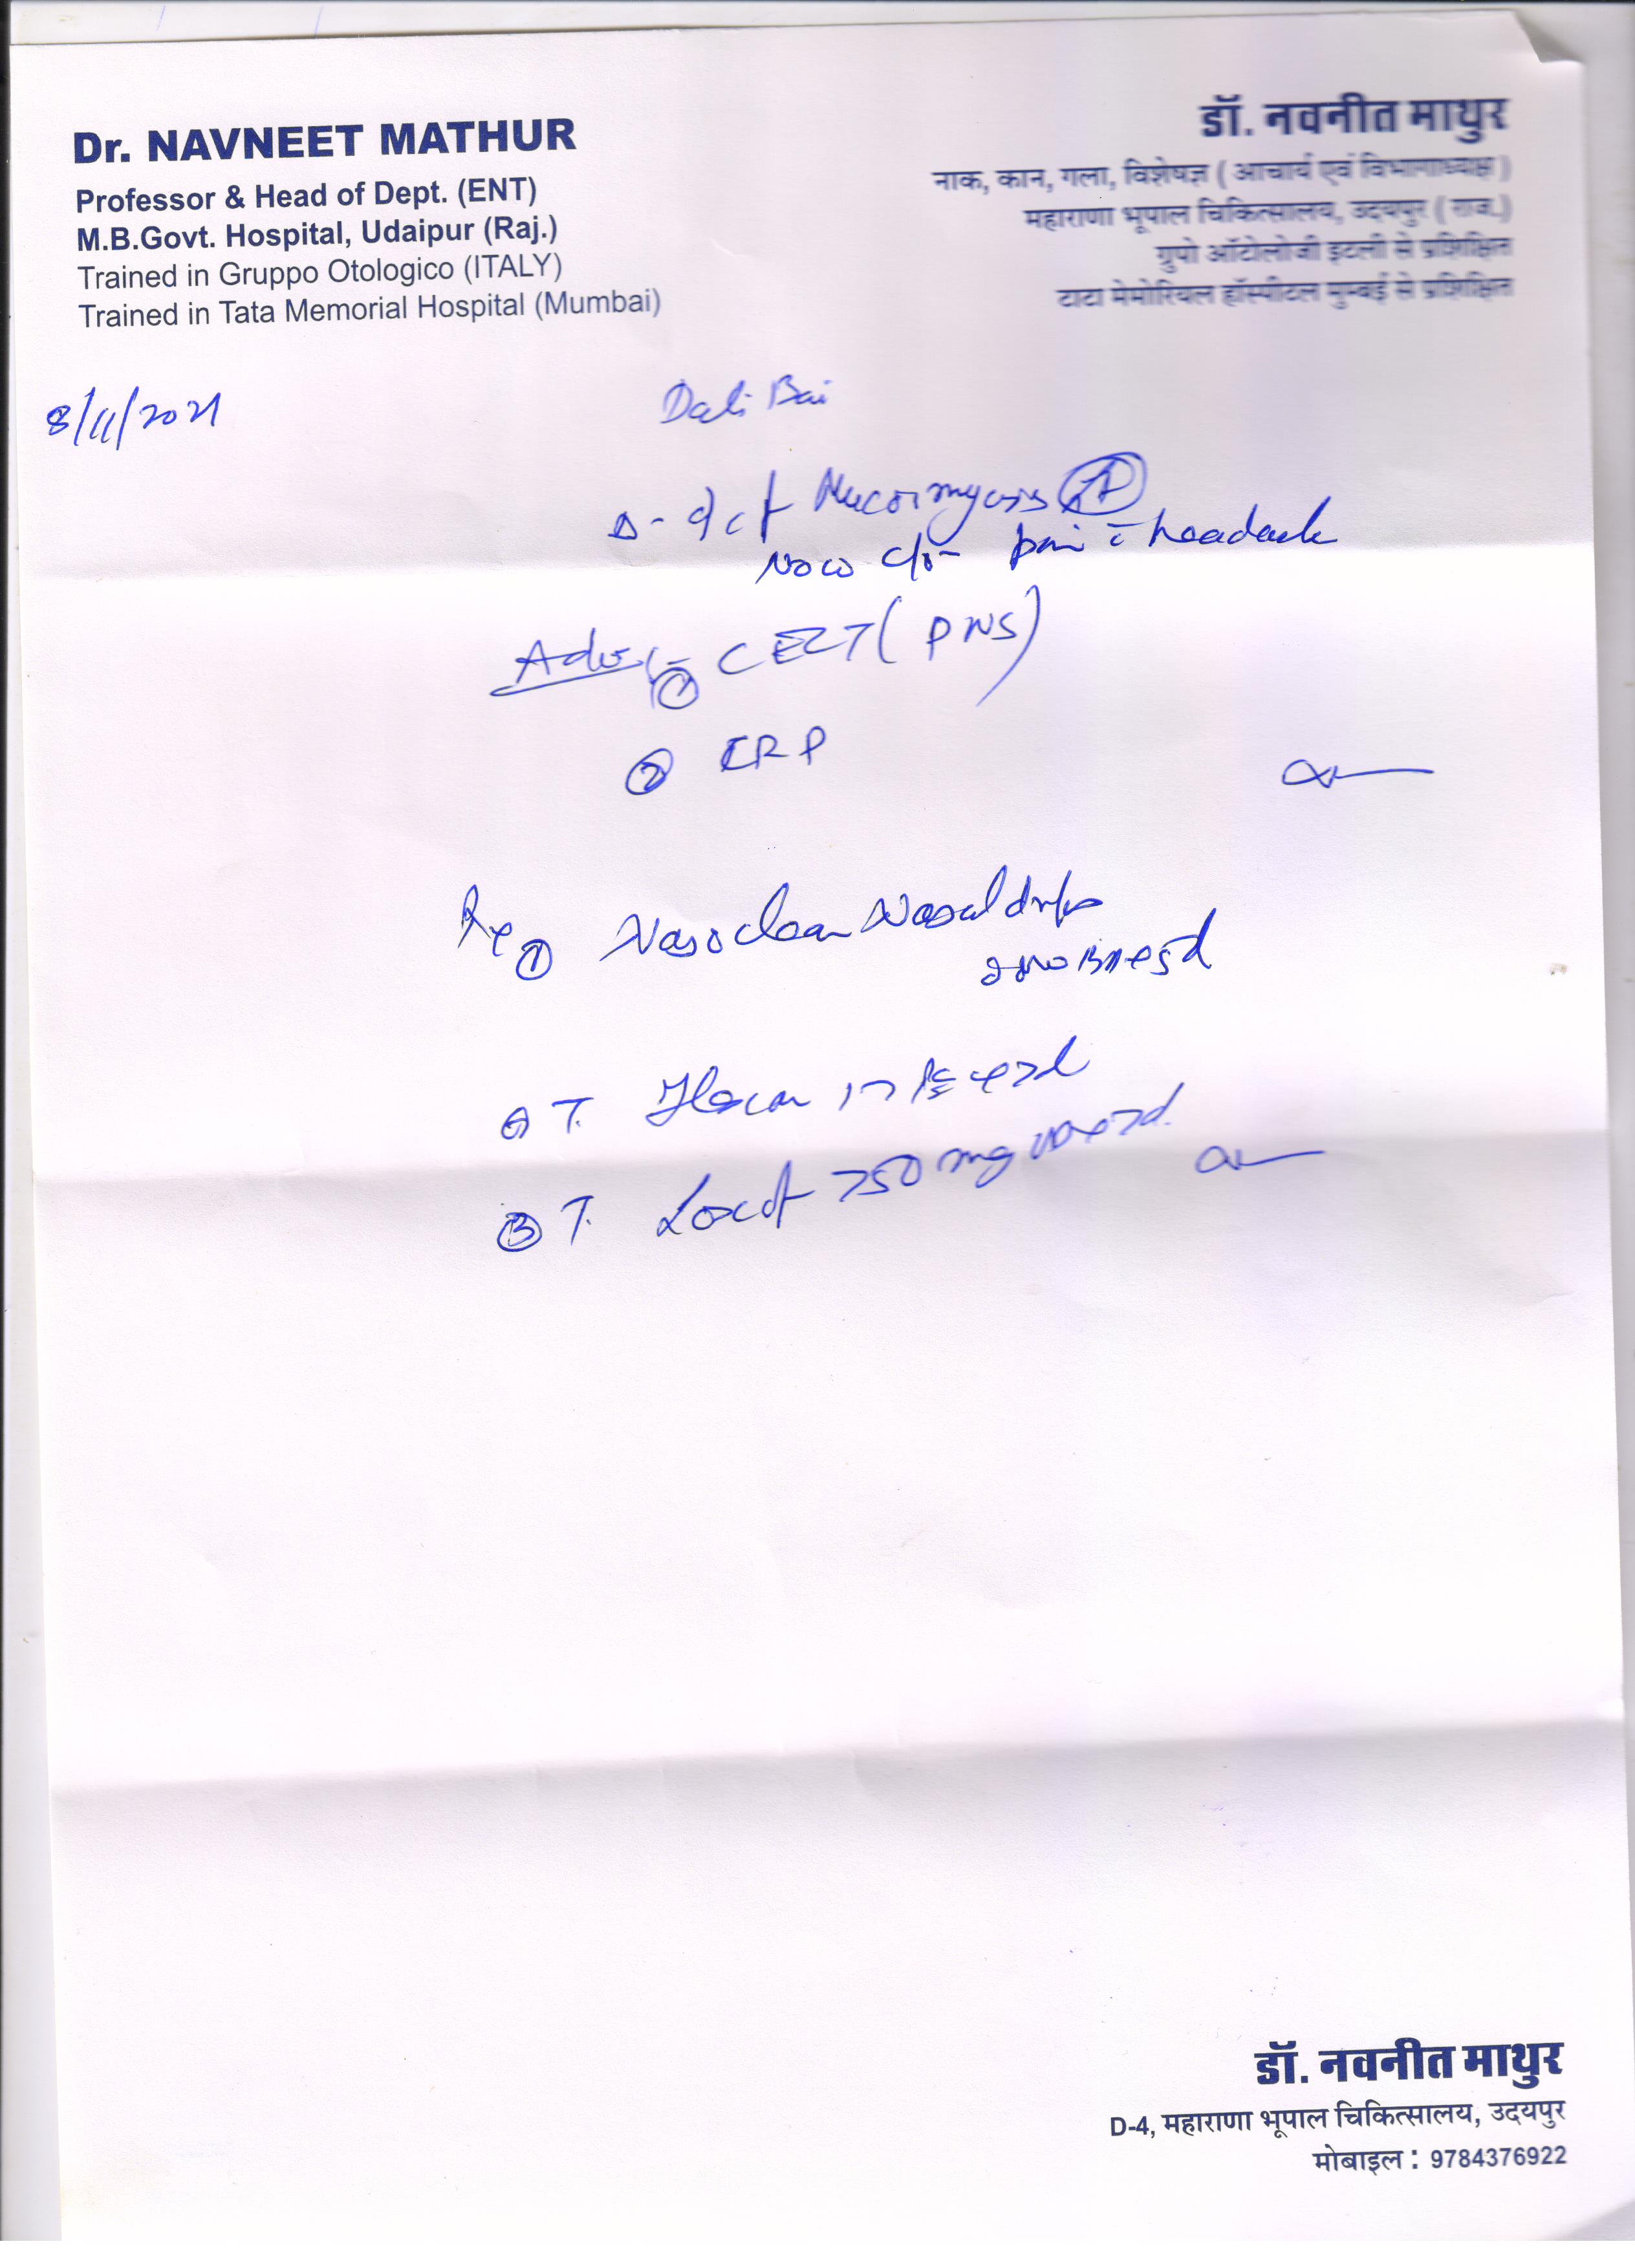 Dr. NAVNEET MATHUR
Professor & Head of Dept. (ENT)
M.B.Govt. Hospital, Udaipur (Raj.)
Trained in Gruppo Otologico (ITALY)
Trained in Tata Memorial Hospital (Mumbai)
डॉ. नवनीत माथुर
नाक, कान, गला, विशेषज्ञ ( आचार्य एवं विभागाध्यक्ष )
महाराणा भूपाल चिकित्सालय, उदयपुर ( राज.)
ग्रुपो ऑटोलोजी इटली से प्रशिक्षित
टाटा मेमोरियल हॉस्पीटल मुम्बई से प्रशिक्षित
8/11/2021
Dali Bai
Mucormycosis
Now c/o- pain headache
Adv:- ① CECT (PNS)
② CRP
Rx ① Nasoclear Nasal drops
② T.
③ T. 750 mg
डॉ. नवनीत माथुर
D-4, महाराणा भूपाल चिकित्सालय, उदयपुर
मोबाइल : 9784376922